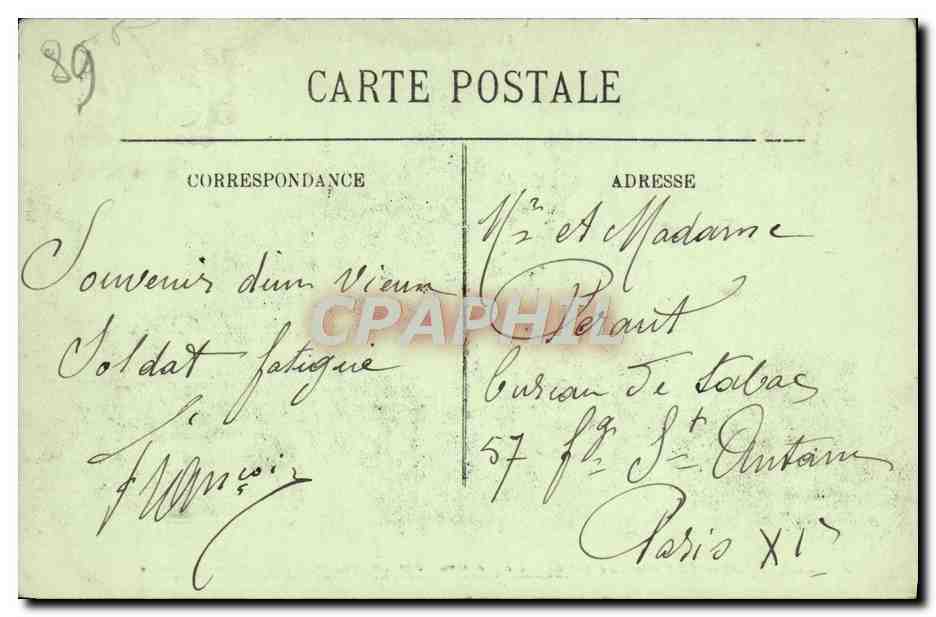 89
CARTE POSTALE
CORRESPONDANCE
Souvenir d'un vieux
Soldat fatigué
François
ADRESSE
Mr et Madame
Peraut
bureau de tabac
57 fg St Antoine
Paris XIe
CPAPHIL